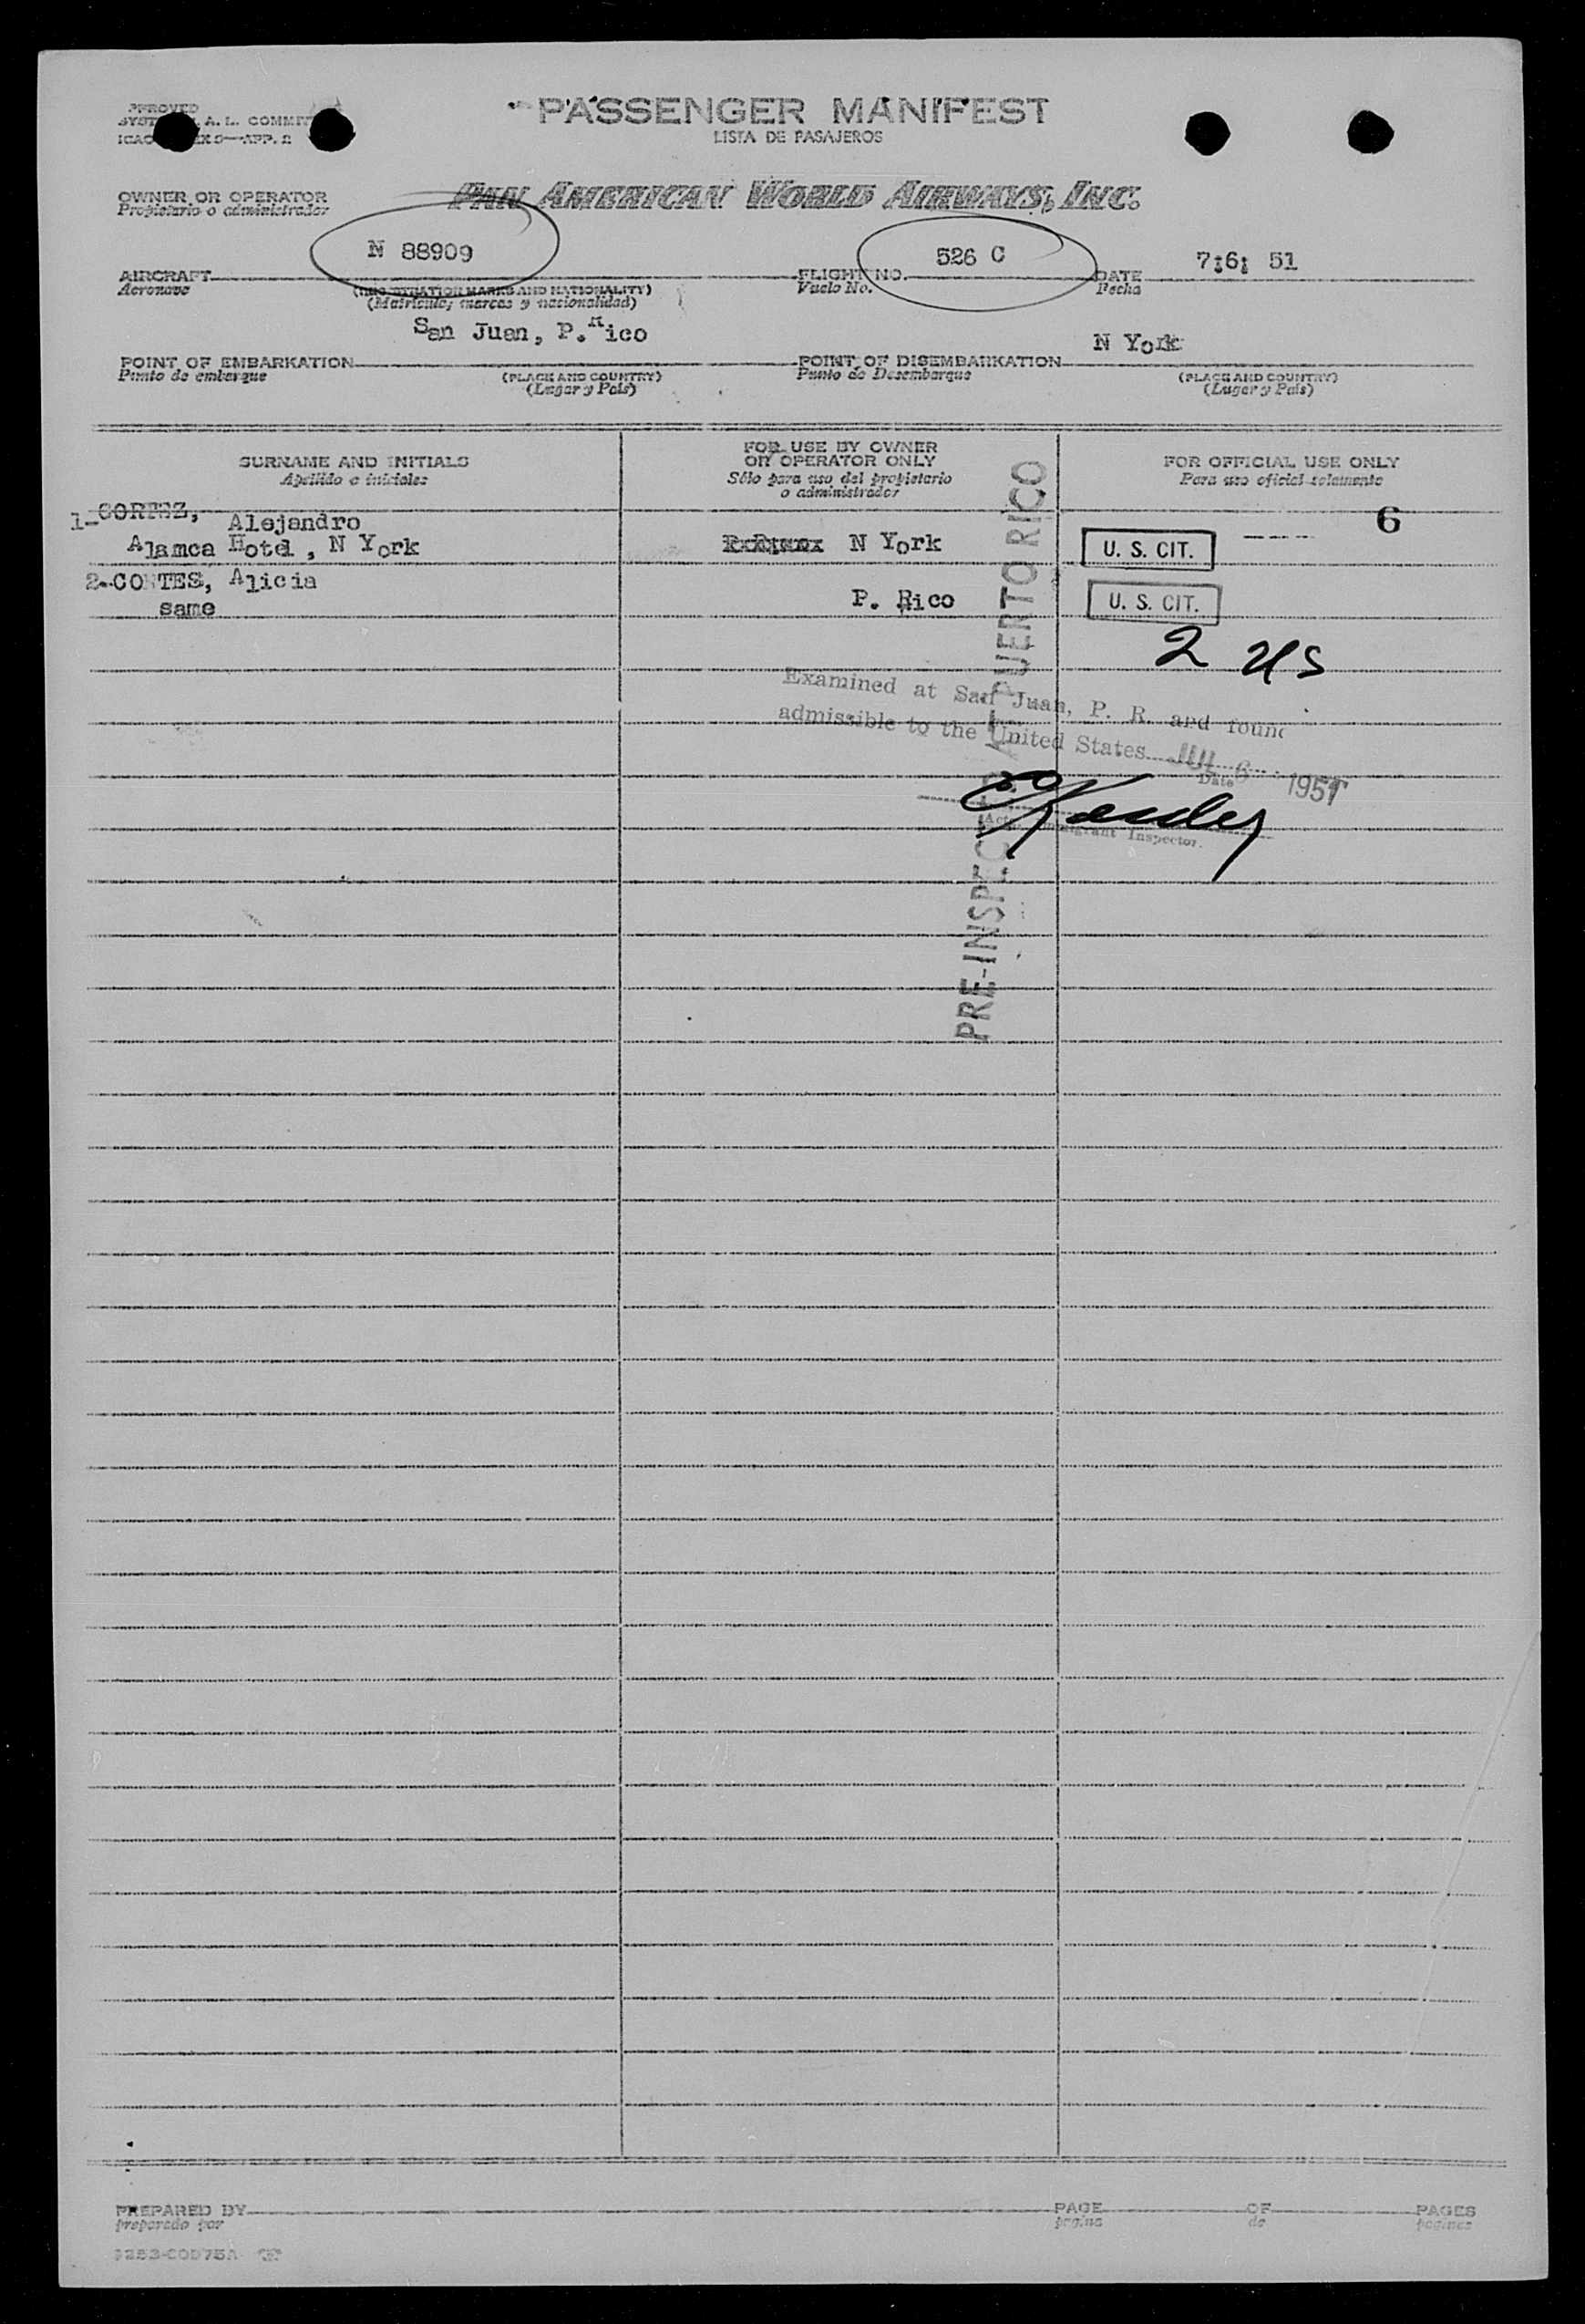 PASSENGER MANIFEST
LISTA DE PASAJEROS
A. L. COMMIT
APP. 2
OWNER OR OPERATOR
Propietario o administrador
PAN AMERICAN WORLD AIRWAYS, INC.
N 88909
526 C
7:6: 51
AIRCRAFT
FLIGHT NO.
DATE
Aeronave
(REGISTRATION MARKS AND NATIONALITY)
Vuelo No.
Fecha
(Matricula, marcas y nacionalidad)
San Juan, P.Rico
N York
POINT OF EMBARKATION
POINT OF DISEMBARKATION
Punto de embarque
(PLACE AND COUNTRY)
Punto de Desembarque
(PLACE AND COUNTRY)
(Lugar y País)
(Lugar y País)
SURNAME AND INITIALS
Apellido e iniciales
FOR USE BY OWNER
OR OPERATOR ONLY
Sólo para uso del propietario
o administrador
FOR OFFICIAL USE ONLY
Para uso oficial solamente
1-CORTEZ, Alejandro
6
Alamca Hotel , N York
N York
U. S. CIT.
2-CORTES, Alicia
same
P. Rico
U. S. CIT.
2 US
Examined at San Juan, P. R. and found
admissible to the United States JUL 6 1951
Date
Immigrant Inspector.
PRE-INSPECTED AT PUERTO RICO
PREPARED BY
PAGE
OF
PAGES
preparado por
pagina
de
paginas